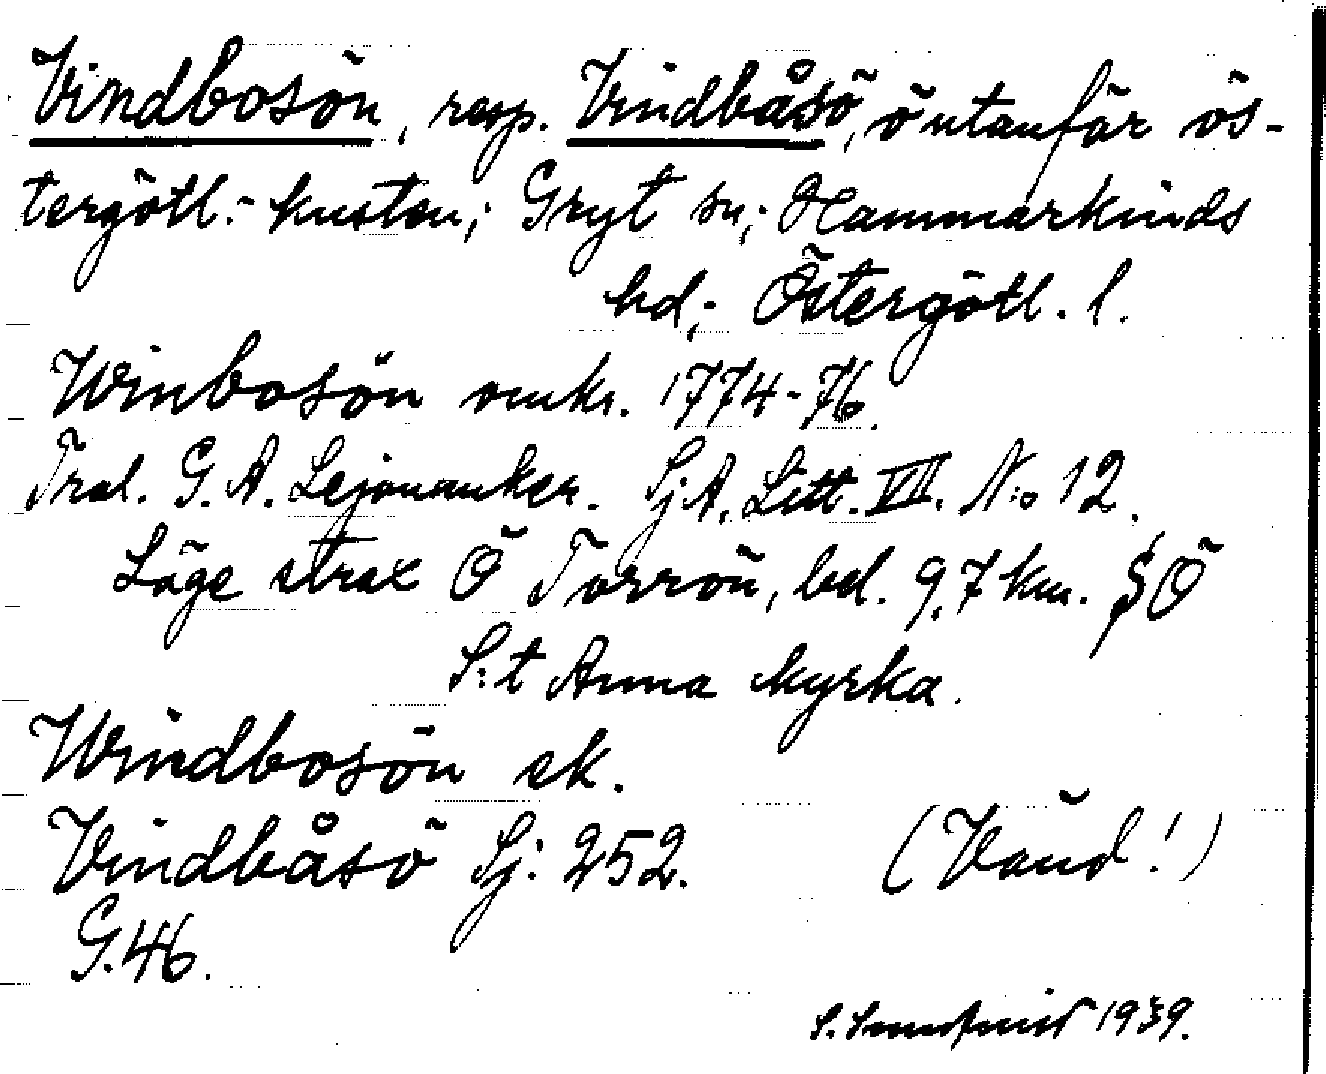 Vindbosön, resp. Vindbåsö, ö utanför ös-
tergötl.- kusten; Gryt sn; Hammarkinds
hd; Östergötl. l.
Winbosön omkr. 1774-76.
Tral. G. A. Lejonanker. Sj A. Litt. VII. N:o 12.
Läge strax Ö Torrön, bel. 9,7 km. SÖ
S:t Anna kyrka.
Windbosön ek.
Vindbåsö Sj: 252. (Vänd!)
G. 46.
S. 1939.